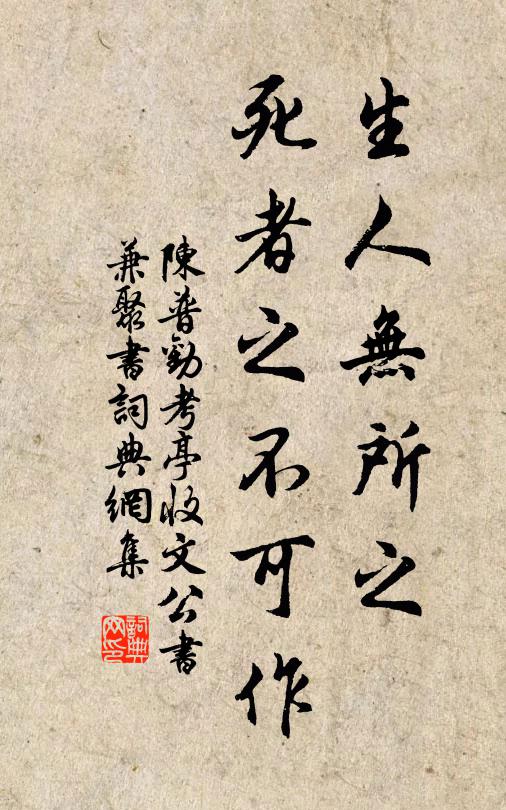 生人無所之
死者之不可作
陳普勸考亭收文公書
兼聚書詞典網集
詞典網印